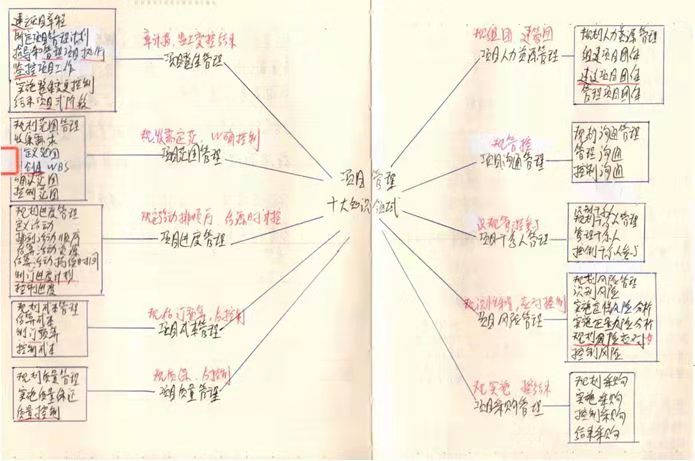 制定项目管理计划
指导和管理项目执行
监控项目工作
实施整体变更控制
结束项目或阶段
项目整体管理
规划范围管理
收集需求
定义范围
创建WBS
确认范围
控制范围
项目范围管理
规划进度管理
定义活动
排列活动顺序
估算活动资源
估算活动持续时间
制订进度计划
控制进度
项目进度管理
规划成本管理
估算成本
制订预算
控制成本
项目成本管理
规划质量管理
实施质量保证
质量控制
项目质量管理
项目管理
十大知识领域
规组团 建管团
项目人力资源管理
规划人力资源管理
组建项目团队
建设项目团队
管理项目团队
规管控
项目沟通管理
规划沟通管理
管理沟通
控制沟通
项目干系人管理
识别干系人
规划干系人管理
管理干系人
控制干系人参与
项目风险管理
规划风险管理
识别风险
实施定性风险分析
实施定量风险分析
规划风险应对
控制风险
规实施 控结束
项目采购管理
规划采购
实施采购
控制采购
结束采购